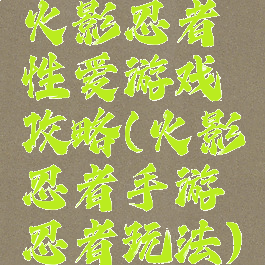 火影忍者
性爱游戏
攻略(火影
忍者手游
忍者玩法)